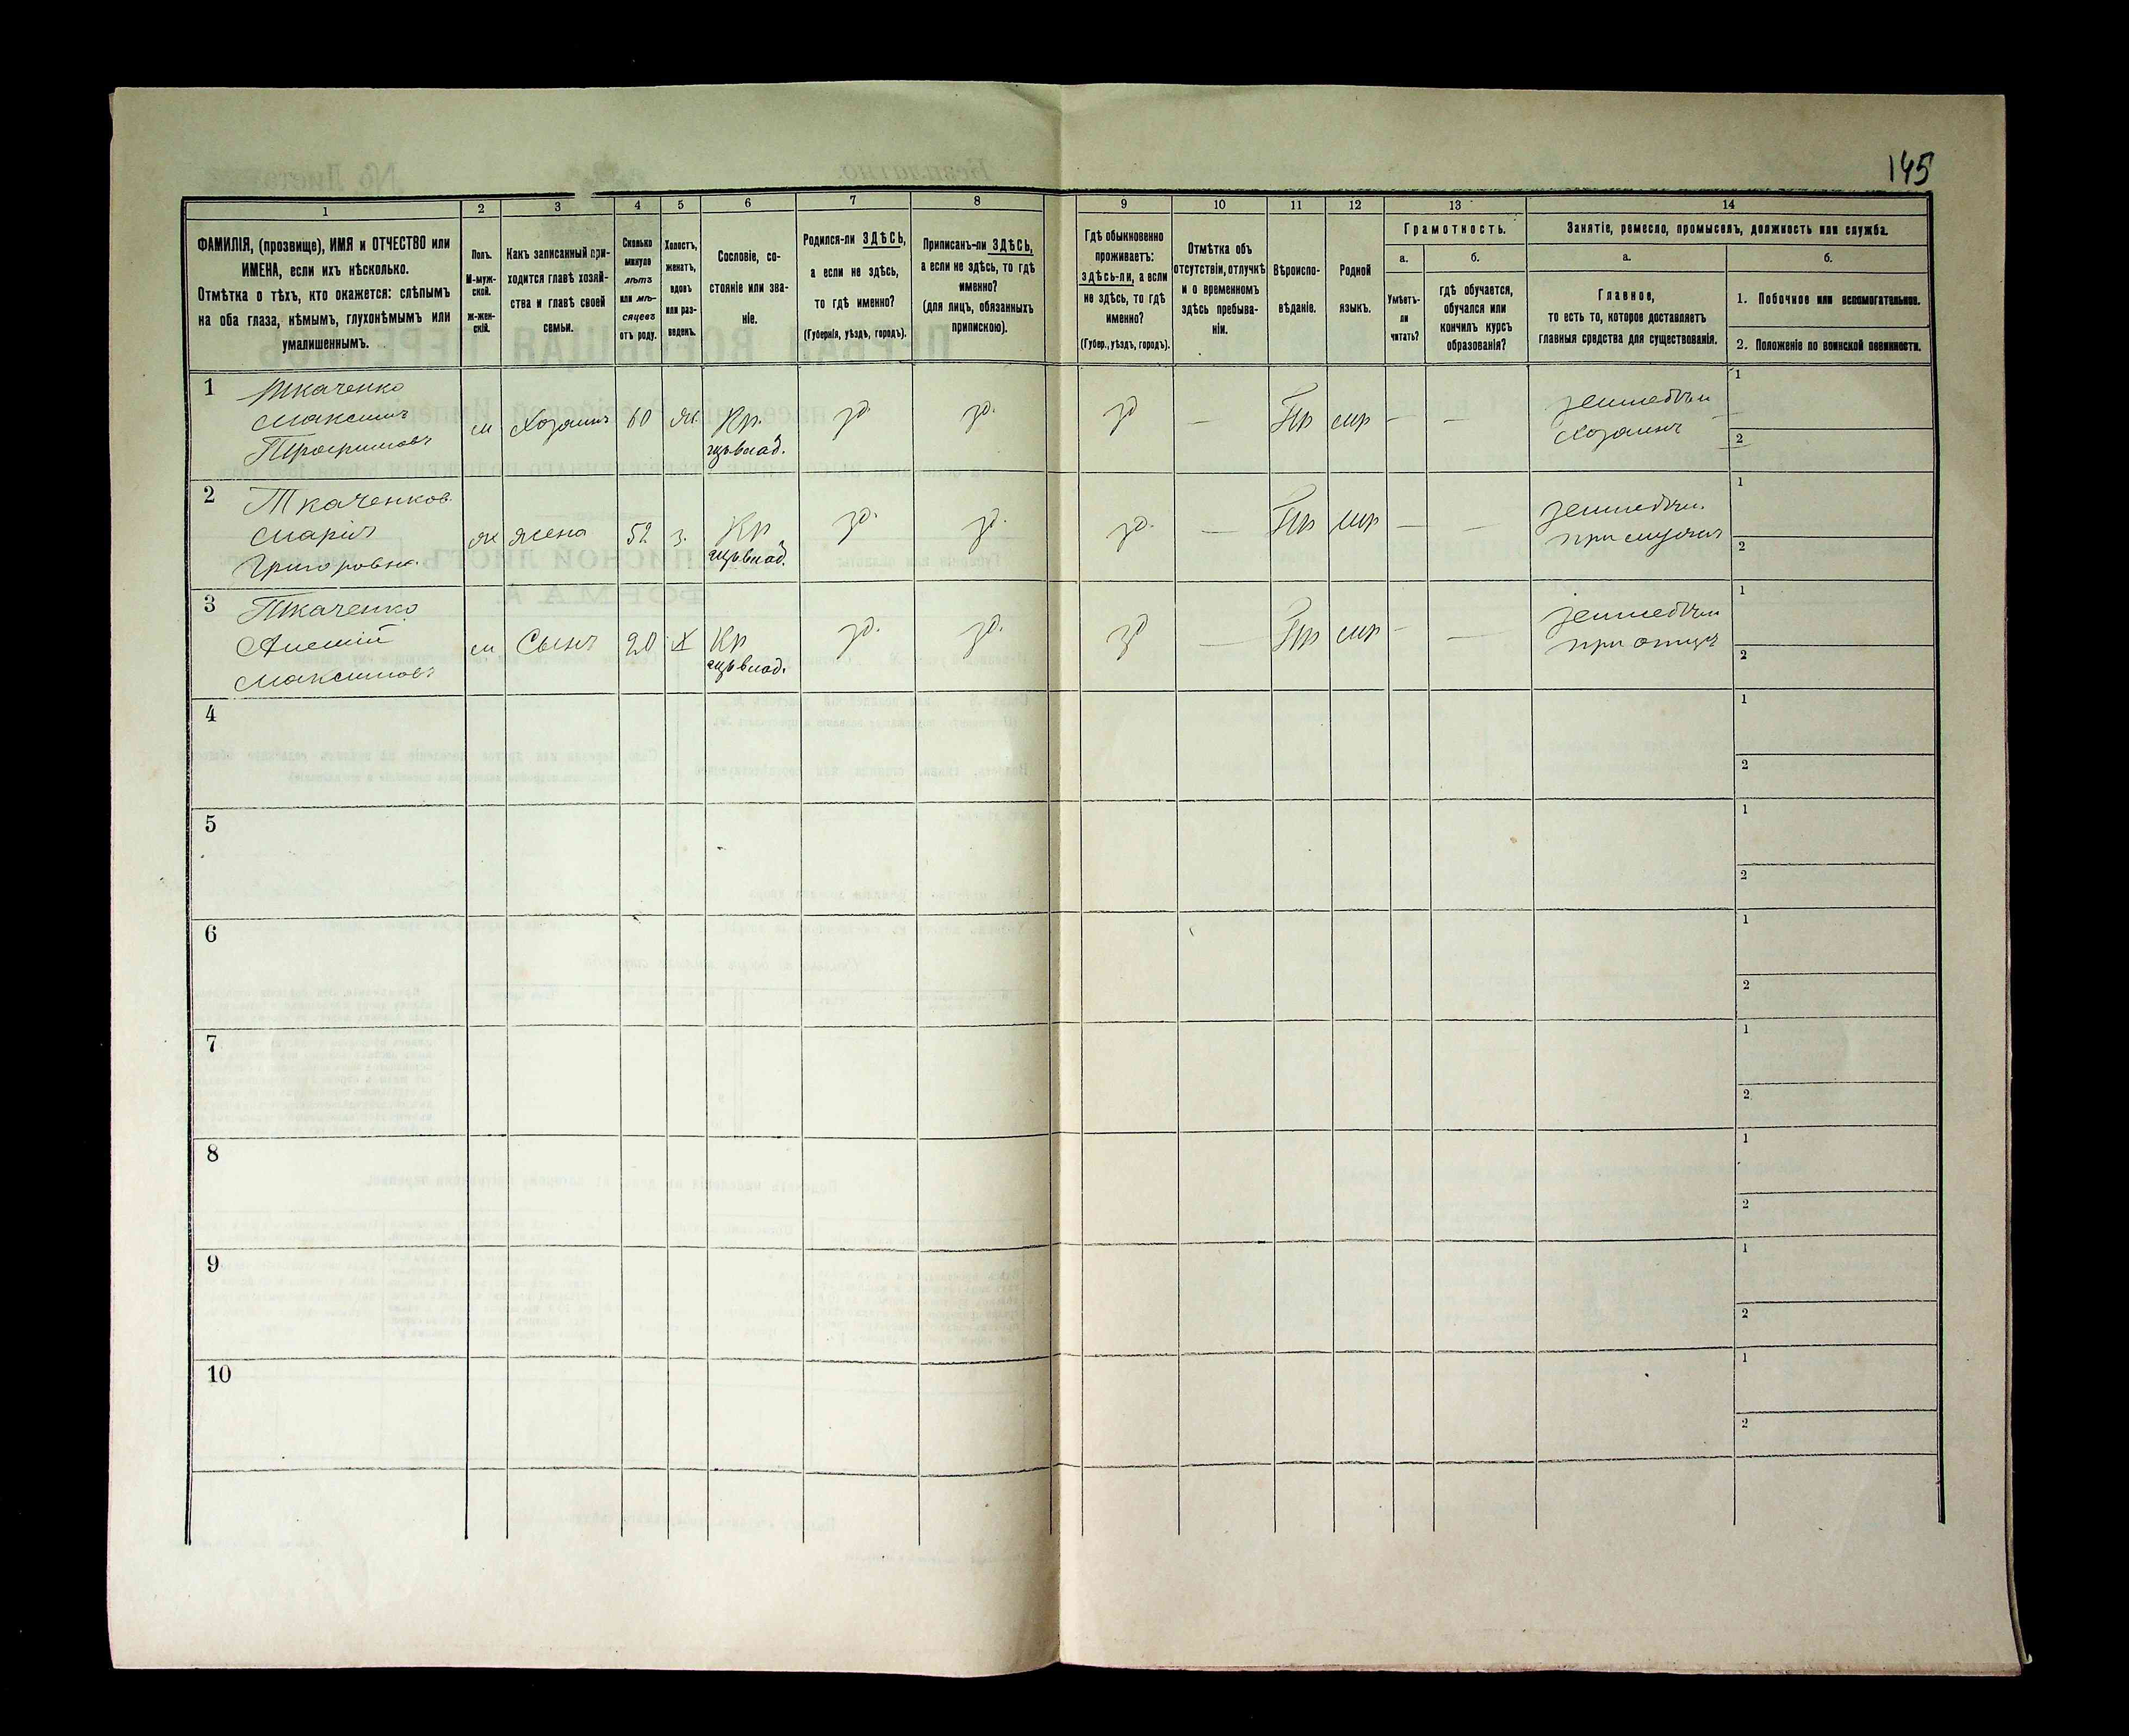 145
1
2
3
4
5
6
7
8
9
10
11
12
13
14
ФАМИЛІЯ, (прозвище), ИМЯ и ОТЧЕСТВО или
ИМЕНА, если ихъ нѣсколько.
Отмѣтка о тѣхъ, кто окажется: слѣпымъ
на оба глаза, нѣмымъ, глухонѣмымъ или
умалишеннымъ.
Полъ.
М-муж-
ской.
ж-жен-
скій.
Какъ записанный при-
ходится главѣ хозяй-
ства и главѣ своей
семьи.
Сколько
минуло
лѣтъ
или мѣ-
сяцевъ
отъ роду.
Холостъ,
женатъ,
вдовъ
или раз-
веденъ.
Сословіе, со-
стояніе или зва-
ніе.
Родился-ли ЗДѢСЬ,
а если не здѣсь,
то гдѣ именно?
(Губернія, уѣздъ, городъ).
Приписанъ-ли ЗДѢСЬ,
а если не здѣсь, то гдѣ
именно?
(для лицъ, обязанныхъ
припискою).
Гдѣ обыкновенно
проживаетъ:
здѣсь-ли, а если
не здѣсь, то гдѣ
именно?
(Губер., уѣздъ, городъ).
Отмѣтка объ
отсутствіи, отлучкѣ
и о временномъ
здѣсь пребыва-
ніи.
Вѣроиспо-
вѣданіе.
Родной
языкъ.
Грамотность.
а.
Умѣетъ-
ли
читать?
б.
гдѣ обучается,
обучался или
кончилъ курсъ
образованія?
Занятіе, ремесло, промыселъ, должность или служба.
а.
Главное,
то есть то, которое доставляетъ
главныя средства для существованія.
б.
1. Побочное или вспомогательное.
2. Положеніе по воинской повинности.
1
Ткаченко
Максимъ
Трофимовъ
м
Хозяинъ
60
ж.
Кр.
зд.
зд.
зд
—
Пр
мр
—
—
Хозяинъ
1
—
2
—
2
Ткаченков
Марія
Григоровна.
ж
жена
52
з.
Кр
зд.
зд.
зд.
—
Пр
мр
—
—
при мужѣ
1
2
3
Ткаченко
Максимовъ
м
Сынъ
20
х
Кр
зд.
зд.
зд
—
Пр
мр
—
—
при отцѣ
1
2
4
1
2
5
1
2
6
1
2
7
1
2
8
1
2
9
1
2
10
1
2